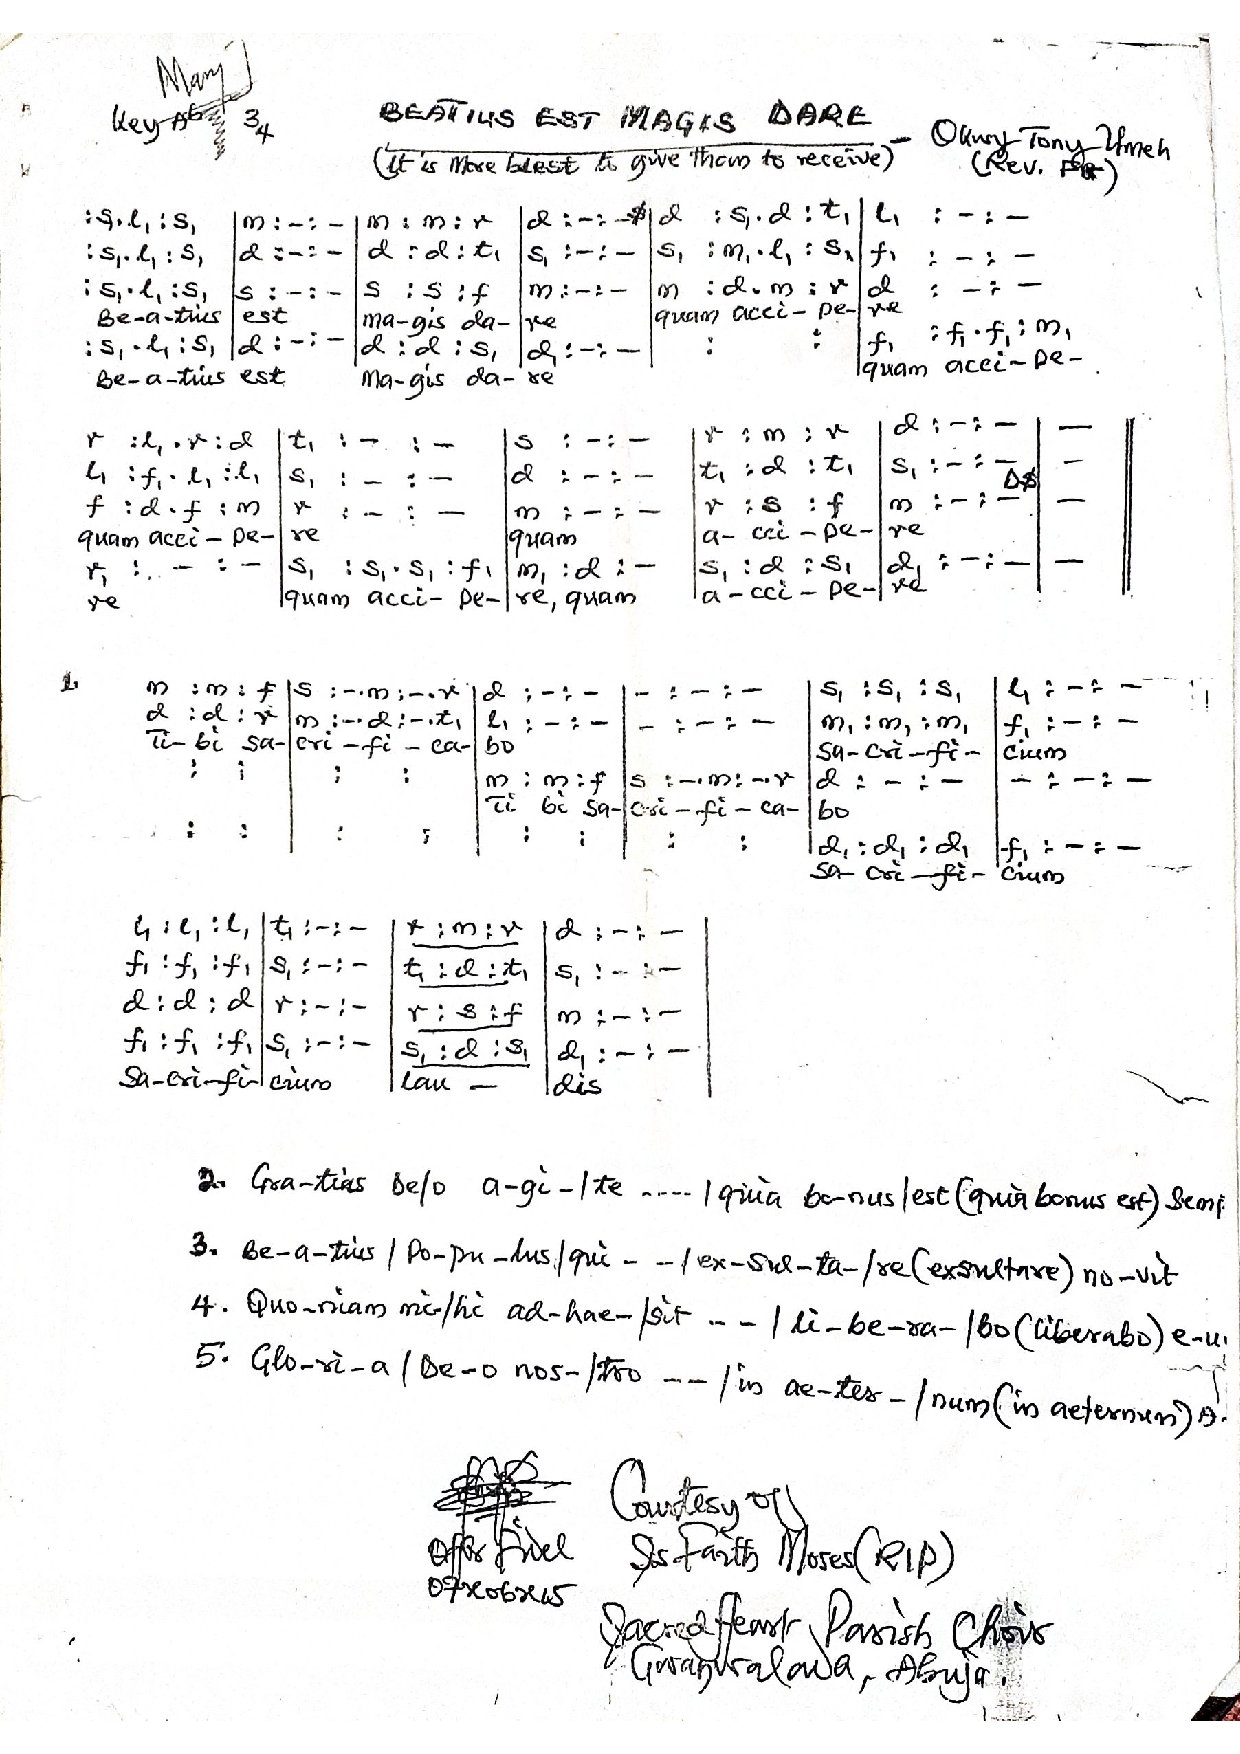 Many
Key Ab 3/4
BEATIUS EST MAGIS DARE
(It is more blest to give than to receive) - Okwy Tony Umeh
(Rev. Fr)
:s₁.l₁:s₁ | m:-:- | m:m:r | d:-:- | d :s₁.d:t₁ | l₁ :-:-
:s₁.l₁:s₁ | d:-:- | d:d:t₁ | s₁:-:- | s₁ :m₁.l₁:s₁ | f₁ :-:-
:s₁.l₁:s₁ | s:-:- | s:s:f | m:-:- | m :d.m:r | d :-:-
Be-a-tius | est | ma-gis da- | re | quam acci-pe- | re
:s₁.l₁:s₁ | d:-:- | d:d:s₁ | d₁:-:- | : : | f₁ :f₁.f₁:m₁
Be-a-tius est ma-gis da-re | quam acci-pe-
r :l₁.r:d | t₁ :-:- | s :-:- | r:m:r | d:-:- | -
l₁ :f₁.l₁:l₁ | s₁ :-:- | d :-:- | t₁:d:t₁ | s₁:-:- | -
D$
f :d.f:m | r :-:- | m :-:- | r:s:f | m:-:- | -
quam acci-pe- | re | quam | a-cci-pe- | re
r₁ :-:- | s₁ :s₁.s₁:f₁ | m₁:d:- | s₁:d:s₁ | d₁:-:- | -
re | quam acci-pe- | re, quam | a-cci-pe- | re
1. m:m:f | s:-.m:-.r | d:-:- | -:-:- | s₁:s₁:s₁ | l₁:-:-
d:d:r | m:-.d:-.t₁ | l₁:-:- | -:-:- | m₁:m₁:m₁ | f₁:-:-
Ti-bi sa- | cri-fi-ca- | bo | sa-cri-fi- | cium
: : | : : | m:m:f | s:-.m:-.r | d:-:- | -:-:-
Ti bi sa- | cri-fi-ca- | bo
: : | : : | : : | : : | d₁:d₁:d₁ | f₁:-:-
sa-cri-fi- cium
l₁:l₁:l₁ | t₁:-:- | r:m:r | d:-:- |
f₁:f₁:f₁ | s₁:-:- | t₁:d:t₁ | s₁:-:-
d:d:d | r:-:- | r:s:f | m:-:-
f₁:f₁:f₁ | s₁:-:- | s₁:d:s₁ | d₁:-:-
Sa-cri-fi- | cium | lau - | dis
2. Gra-tias De/o a-gi-/te ---- /quia bo-nus/est (quia bonus est) Semp
3. Be-a-tius / Po-pu-lus/qui - - / ex-sul-ta-/re (exsultare) no-vit
4. Quo-niam mi-/hi ad-hae-/sit - - - / li-be-ra-/bo (liberabo) e-u
5. Glo-ri-a / De-o nos-/tro --- /in ae-ter-/num (in aeternum) A.
Courtesy of
Sis Faith Moses (RIP)
Sacred Heart Parish Choir
Gwagwalada, Abuja.